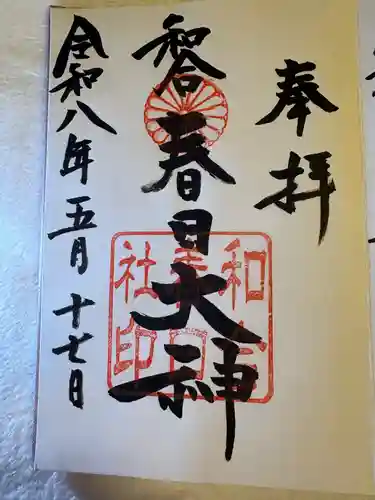 奉拝
春日大神
令和八年五月十七日
和
社印